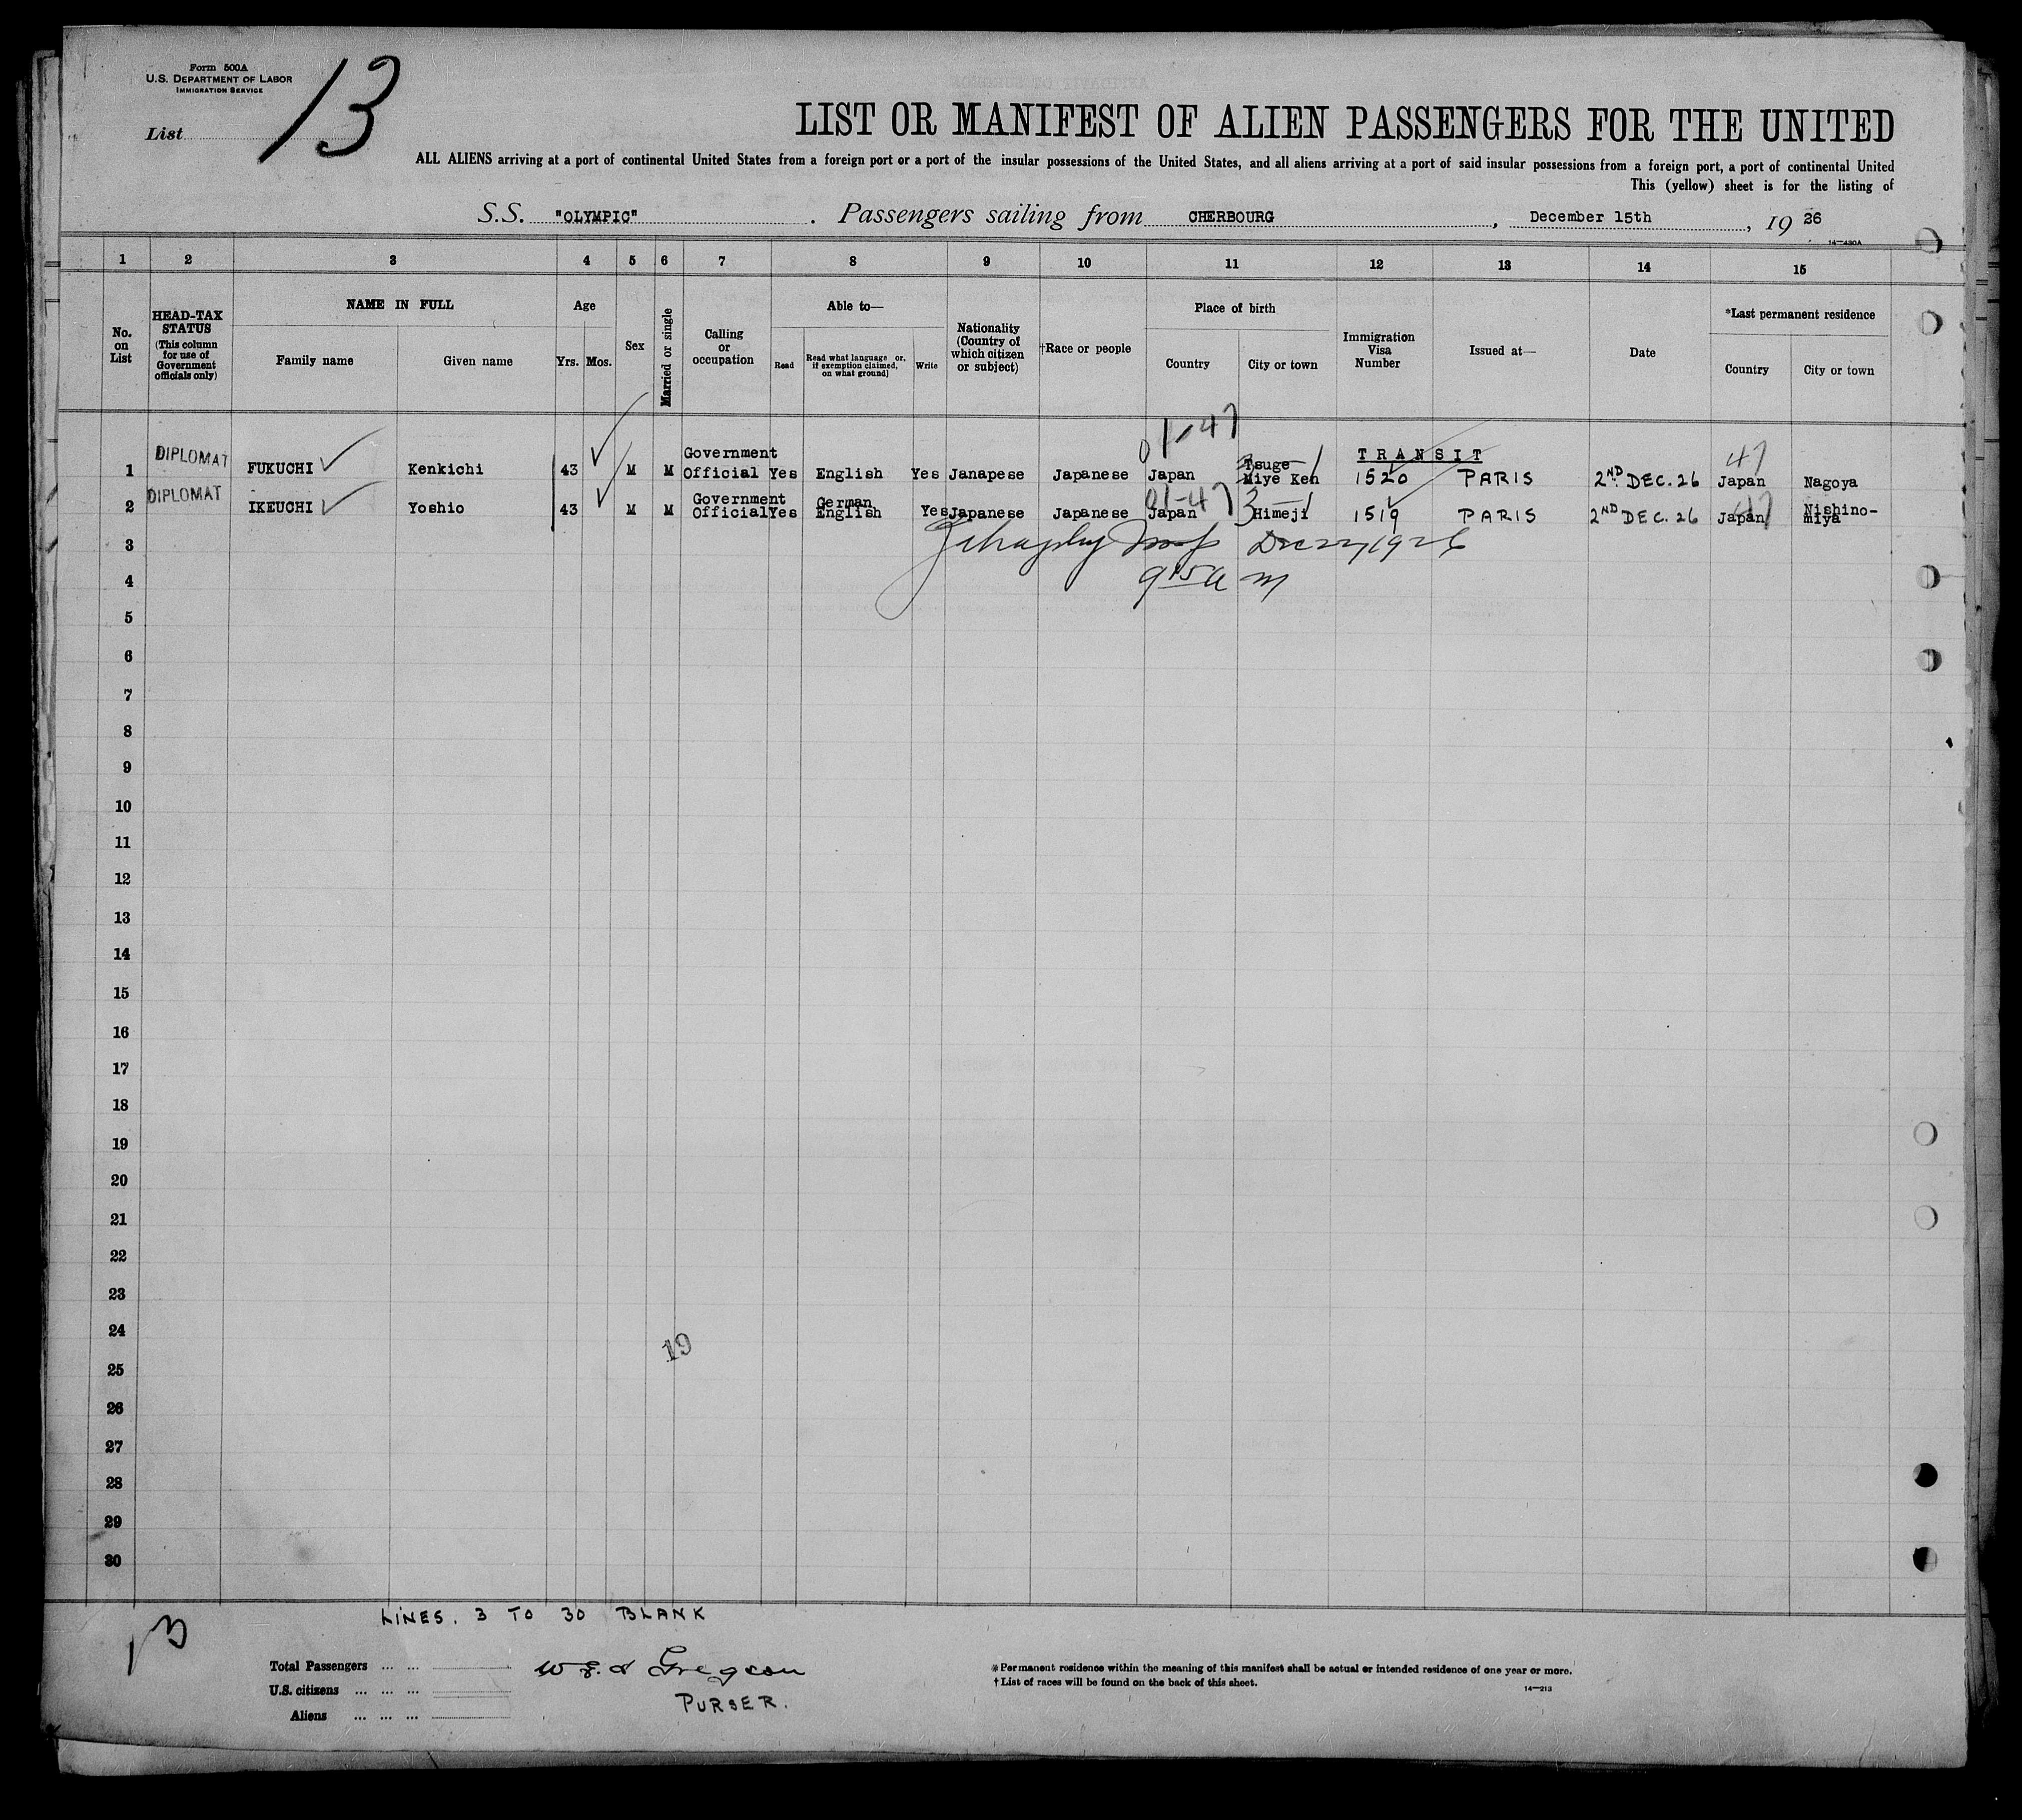 Form 500A
U.S. DEPARTMENT OF LABOR
IMMIGRATION SERVICE
List 13
LIST OR MANIFEST OF ALIEN PASSENGERS FOR THE UNITED
ALL ALIENS arriving at a port of continental United States from a foreign port or a port of the insular possessions of the United States, and all aliens arriving at a port of said insular possessions from a foreign port, a port of continental United
This (yellow) sheet is for the listing of
S.S. "OLYMPIC". Passengers sailing from CHERBOURG, December 15th, 19 26
14—430A
1 2 3 4 5 6 7 8 9 10 11 12 13 14 15
No. on List
HEAD-TAX STATUS (This column for use of Government officials only)
NAME IN FULL
Family name Given name
Age
Yrs. Mos.
Sex
Married or single
Calling or occupation
Able to—
Read Read what language or, if exemption claimed, on what ground] Write
Nationality (Country of which citizen or subject)
†Race or people
Place of birth
Country City or town
Immigration Visa Number
Issued at—
Date
*Last permanent residence
Country City or town
01-47
1 DIPLOMAT FUKUCHI Kenkichi 43 M M Government Official Yes English Yes Janapese Japanese Japan Tsuge Miye Ken TRANSIT 1520 PARIS 2ND DEC. 26 47 Japan Nagoya
2 DIPLOMAT IKEUCHI Yoshio 43 M M Government Official Yes German English Yes Japanese Japanese Japan 01-47 3 Himeji 1519 PARIS 2ND DEC. 26 Japan 47 Nishino-miya
3 Dec 22, 1926
4 9 15 a m
5
6
7
8
9
10
11
12
13
14
15
16
17
18
19
20
21
22
23
24
19
25
26
27
28
29
30
LINES. 3 TO 30 BLANK
13
Total Passengers ... ...
U.S. citizens ... ... ...
Aliens ... ... ...
Gregson
PURSER.
* Permanent residence within the meaning of this manifest shall be actual or intended residence of one year or more.
† List of races will be found on the back of this sheet.
14—213